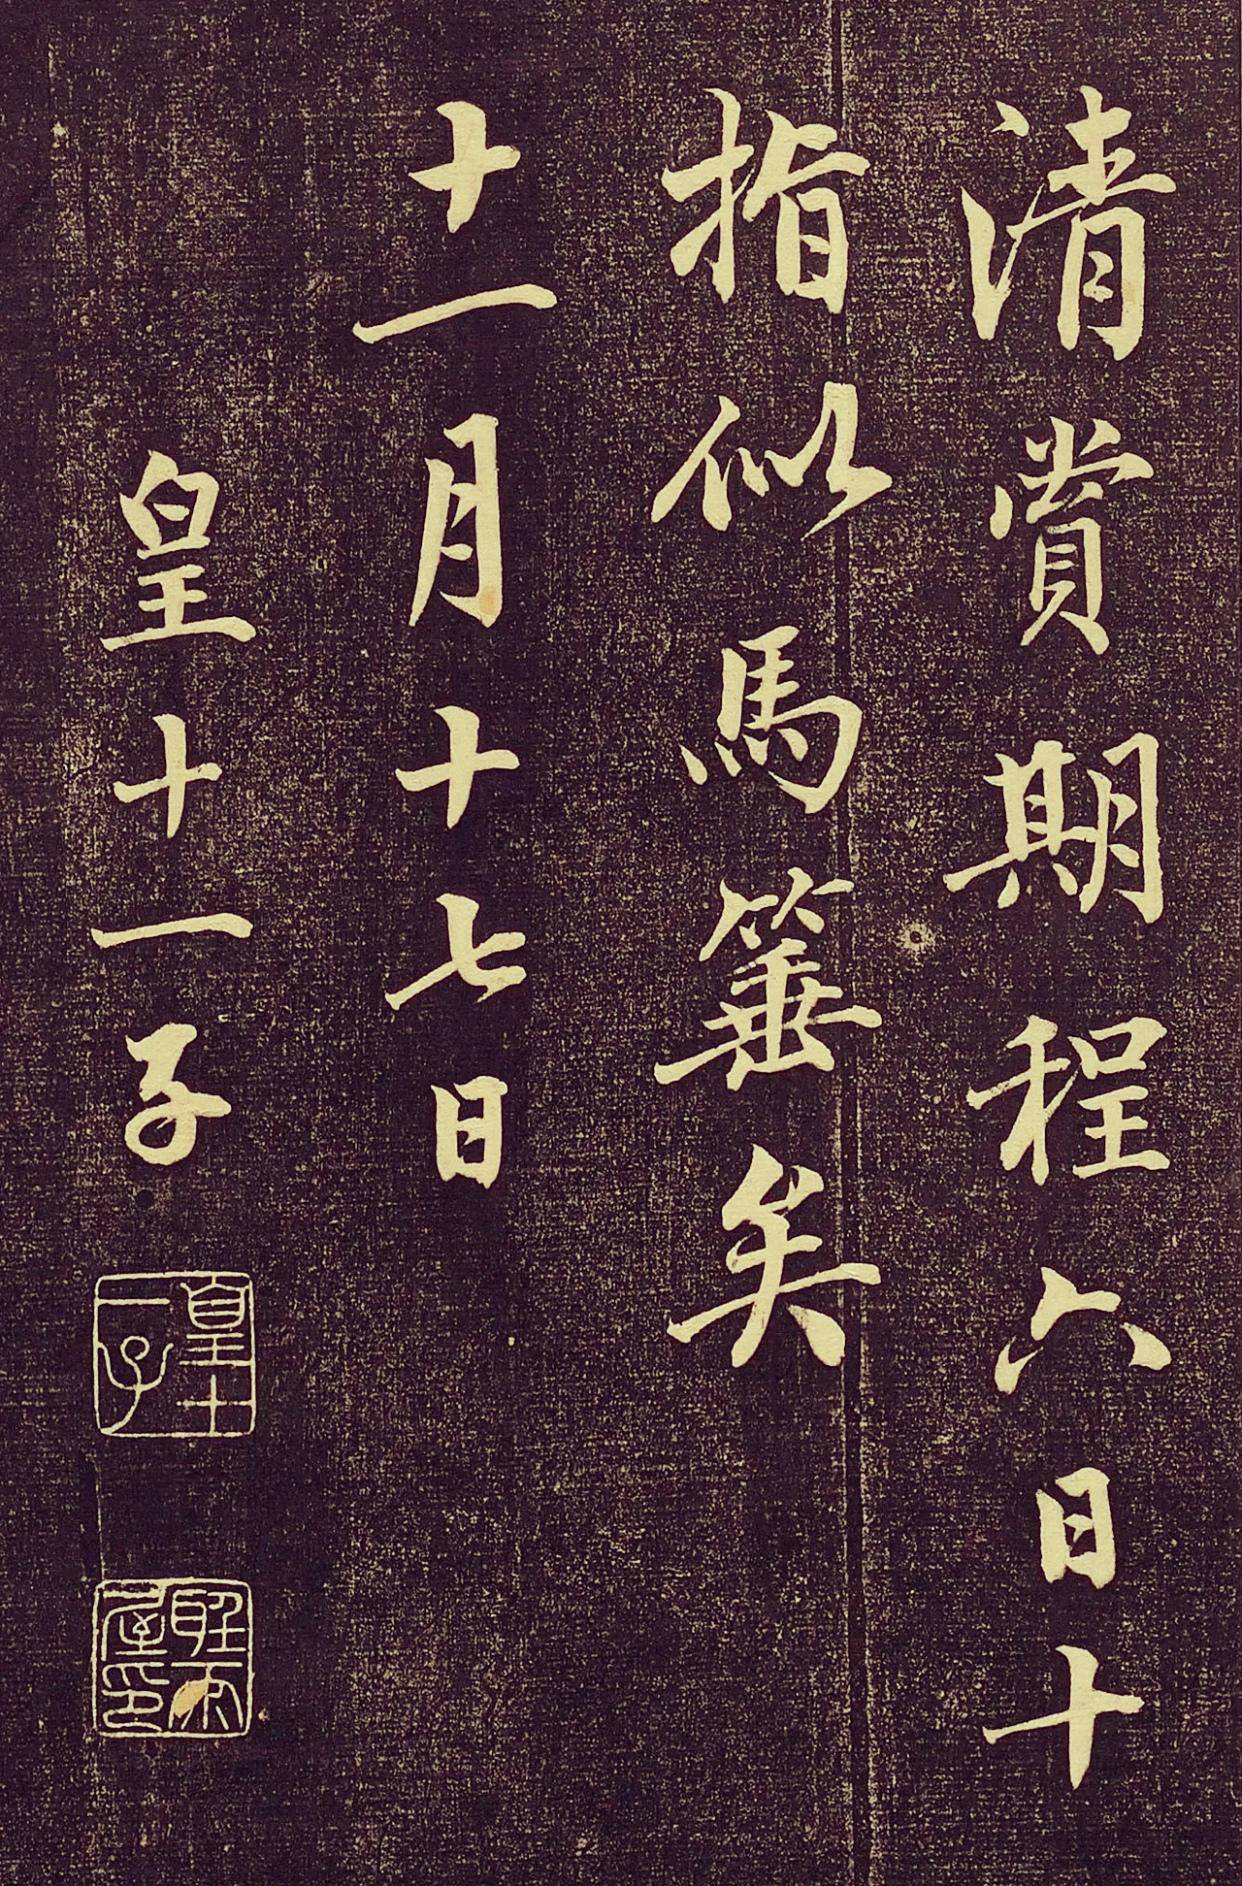 清賞期程六日十
指似馬箠矣
十一月十七日
皇十一子
皇十
一子